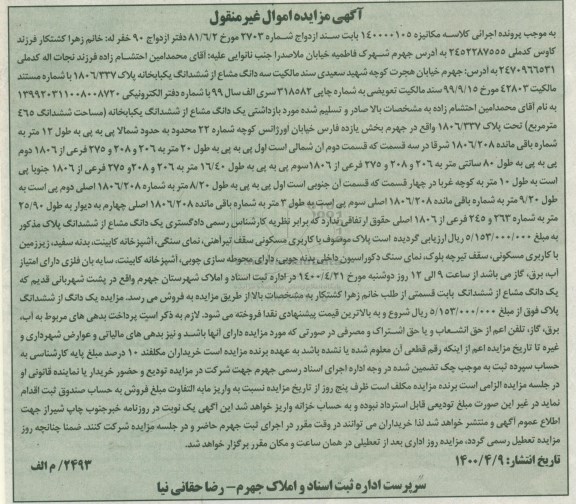 آگهی مزایده اموال غیرمنقول
به موجب پرونده اجرائی کلاسه مکانیزه ۱۴۰۰۰۰۱۰۵ بابت سند ازدواج شماره ۲۷۰۳ مورخ ۸۱/۶/۲ دفتر ازدواج ۹۰ خفر له: خانم زهرا کشتکار فرزند
کاوس کدملی ۲۴۵۲۲۸۷۵۵۵ به ادرس جهرم شهرک فاطمیه خیابان ملاصدرا جنب نانوایی علیه: آقای محمدامین احتشام زاده فرزند نجات اله کدملی
۲۴۷۰۹۶۶۵۳۱ به ادرس: جهرم خیابان هجرت کوچه شهید سعیدی سند مالکیت سه دانگ مشاع از ششدانگ یکبابخانه پلاک ۱۸۰۶/۳۳۷ با شماره مستند
مالکیت ۴۲۸۰۳ مورخ ۹۹/۹/۱۵ سند مالکیت تعویضی به شماره چاپی ۳۱۸۵۸۲ سری الف سال ۹۹ با شماره دفتر الکترونیکی ۱۳۹۹۲۰۳۱۱۰۰۸۰۰۸۷۲۰
به نام آقای محمدامین احتشام زاده به مشخصات بالا صادر و تسلیم شده مورد بازداشتی یک دانگ مشاع از ششدانگ یکبابخانه (مساحت ششدانگ ۴۶۵
مترمربع) تحت پلاک ۱۸۰۶/۳۳۷ واقع در جهرم بخش یازده فارس خیابان اورژانس کوچه شماره ۲۲ محدود به حدود شمالا پی به پی به طول ۱۲ متر به
شماره باقی مانده ۱۸۰۶/۲۰۸ شرقا در سه قسمت که قسمت دوم آن شمالی است اول پی به پی به طول ۲۰ متر به ۲۰۶ و ۲۰۸ و ۲۷۵ فرعی از ۱۸۰۶ دوم
پی به پی به طول ۸۰ سانتی متر به ۲۰۶ و ۲۰۸ و ۲۷۵ فرعی از ۱۸۰۶ سوم پی به پی به طول ۱۶/۴۰ متر به ۲۰۶ و ۲۰۸ و ۲۷۵ فرعی از ۱۸۰۶ جنوبا پی
است به طول ۱۰ متر به کوچه غربا در چهار قسمت که قسمت آن جنوبی است اول پی به پی به طول ۸/۲۰ متر به شماره ۱۸۰۶/۲۰۸ اصلی دوم پی است به
طول ۹/۲۰ متر به شماره باقی مانده ۱۸۰۶/۲۰۸ اصلی سوم پی است به طول ۳ متر به شماره باقی مانده ۱۸۰۶/۲۰۸ اصلی چهارم به دیوار به طول ۲۵/۹۰
متر به شماره ۲۶۳ و ۲۴۵ فرعی از ۱۸۰۶ اصلی حقوق ارتفاقی ندارد که برابر نظریه کارشناس رسمی دادگستری یک دانگ مشاع از ششدانگ پلاک مذکور
به مبلغ ۵/۱۵۳/۰۰۰/۰۰۰ ریال ارزیابی گردیده است پلاک موصوف با کاربری مسکونی سقف تیرآهنی، نمای سنگی، آشپزخانه کابینت، بدنه سفید، زیرزمین
با کاربری مسکونی، سقف تیرچه بلوک، نمای سنگ دکوراسیون داخلی بدنه چوبی، دارای محوطه سازی چوبی، آشپزخانه کابینت، سایه بان فلزی دارای امتیاز
آب، برق، گاز می باشد از ساعت ۹ الی ۱۲ روز دوشنبه مورخ ۱۴۰۰/۴/۲۱ در اداره ثبت اسناد و املاک شهرستان جهرم واقع در پشت شهربانی قدیم که
یک دانگ مشاع از ششدانگ بابت قسمتی از طلب خانم زهرا کشتکار به مشخصات بالا از طریق مزایده به فروش می رسد. مزایده یک دانگ از ششدانگ
پلاک فوق از مبلغ ۵/۱۵۳/۰۰۰/۰۰۰ ریال شروع و به بالاترین قیمت پیشنهادی نقدا فروخته می شود. لازم به ذکر است پرداخت بدهی های مربوط به آب،
برق، گاز، تلفن اعم از حق انشعاب و یا حق اشتراک و مصرفی در صورتی که مورد مزایده دارای آنها باشد و نیز بدهی های مالیاتی و عوارض شهرداری و
غیره تا تاریخ مزایده اعم از اینکه رقم قطعی آن معلوم شده یا نشده باشد به عهده برنده مزایده است خریداران مکلفند ۱۰ درصد مبلغ پایه کارشناسی به
حساب سپرده ثبت به موجب چک تضمین شده در وجه اداره اجرای اسناد رسمی جهرم جهت شرکت در مزایده تودیع و حضور خریدار یا نماینده قانونی او
در جلسه مزایده الزامی است برنده مزایده مکلف است ظرف پنج روز از تاریخ مزایده نسبت به واریز مابه التفاوت مبلغ فروش به حساب صندوق ثبت اقدام
نماید در غیر این صورت مبلغ تودیعی قابل استرداد نبوده و به حساب خزانه واریز خواهد شد این آگهی یک نوبت در روزنامه خبرجنوب چاپ شیراز جهت
اطلاع عموم آگهی و منتشر خواهد شد لذا خریداران می توانند در وقت مقرر در اجرای ثبت جهرم حاضر و در جلسه مزایده شرکت کنند. ضمنا چنانچه روز
مزایده تعطیل رسمی گردد، مزایده روز اداری بعد از تعطیلی در همان ساعت و مکان مقرر برگزار خواهد شد.
تاریخ انتشار: ۱۴۰۰/۴/۹
۲۴۹۳/ م الف
سرپرست اداره ثبت اسناد و املاک جهرم – رضا حقانی نیا